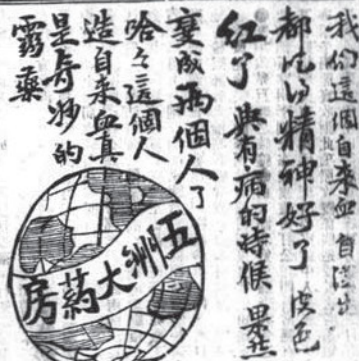 我们這個自来血 自從出
都吃的精神好了 色
红了 與有病的時候
變成兩個人了
哈々這個人
造自来血真
是奇妙的
靈藥
五洲大药房